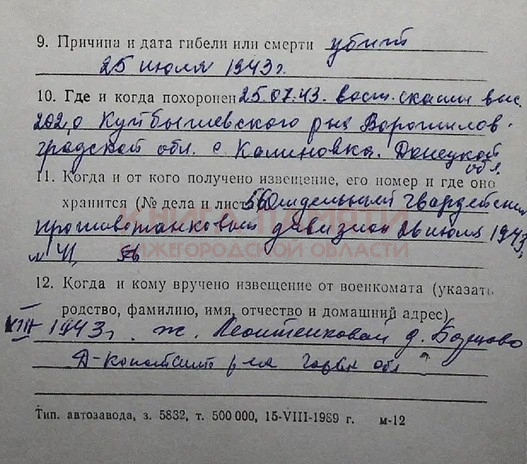 9. Причина и дата гибели или смерти убит
25 июля 1943г.
10. Где и когда похоронен 25.07.43. вост. скаты выс.
202,0 Куйбышевского р-на Ворошилов-
градской обл. с. Калиновка. Донецкой
обл.
11. Когда и от кого получено извещение, его номер и где оно
хранится (№ дела и лист) отдельный гвардейский
противотанковый дивизион 26 июля 1943
КНИГА ПАМЯТИ
НИЖЕГОРОДСКОЙ ОБЛАСТИ
12. Когда и кому вручено извещение от военкомата (указать
родство, фамилию, имя, отчество и домашний адрес)
VIII 1943г. ж. д.
р-на обл
Тип. автозавода, з. 5832, т. 500 000, 15-VIII-1989 г. м-12